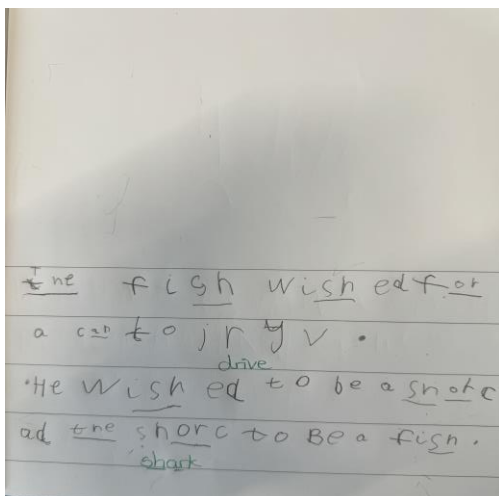 The fish wished for
a car to jryv.
drive
He wished to be a shorc
ad the shorc to Be a fish.
shark